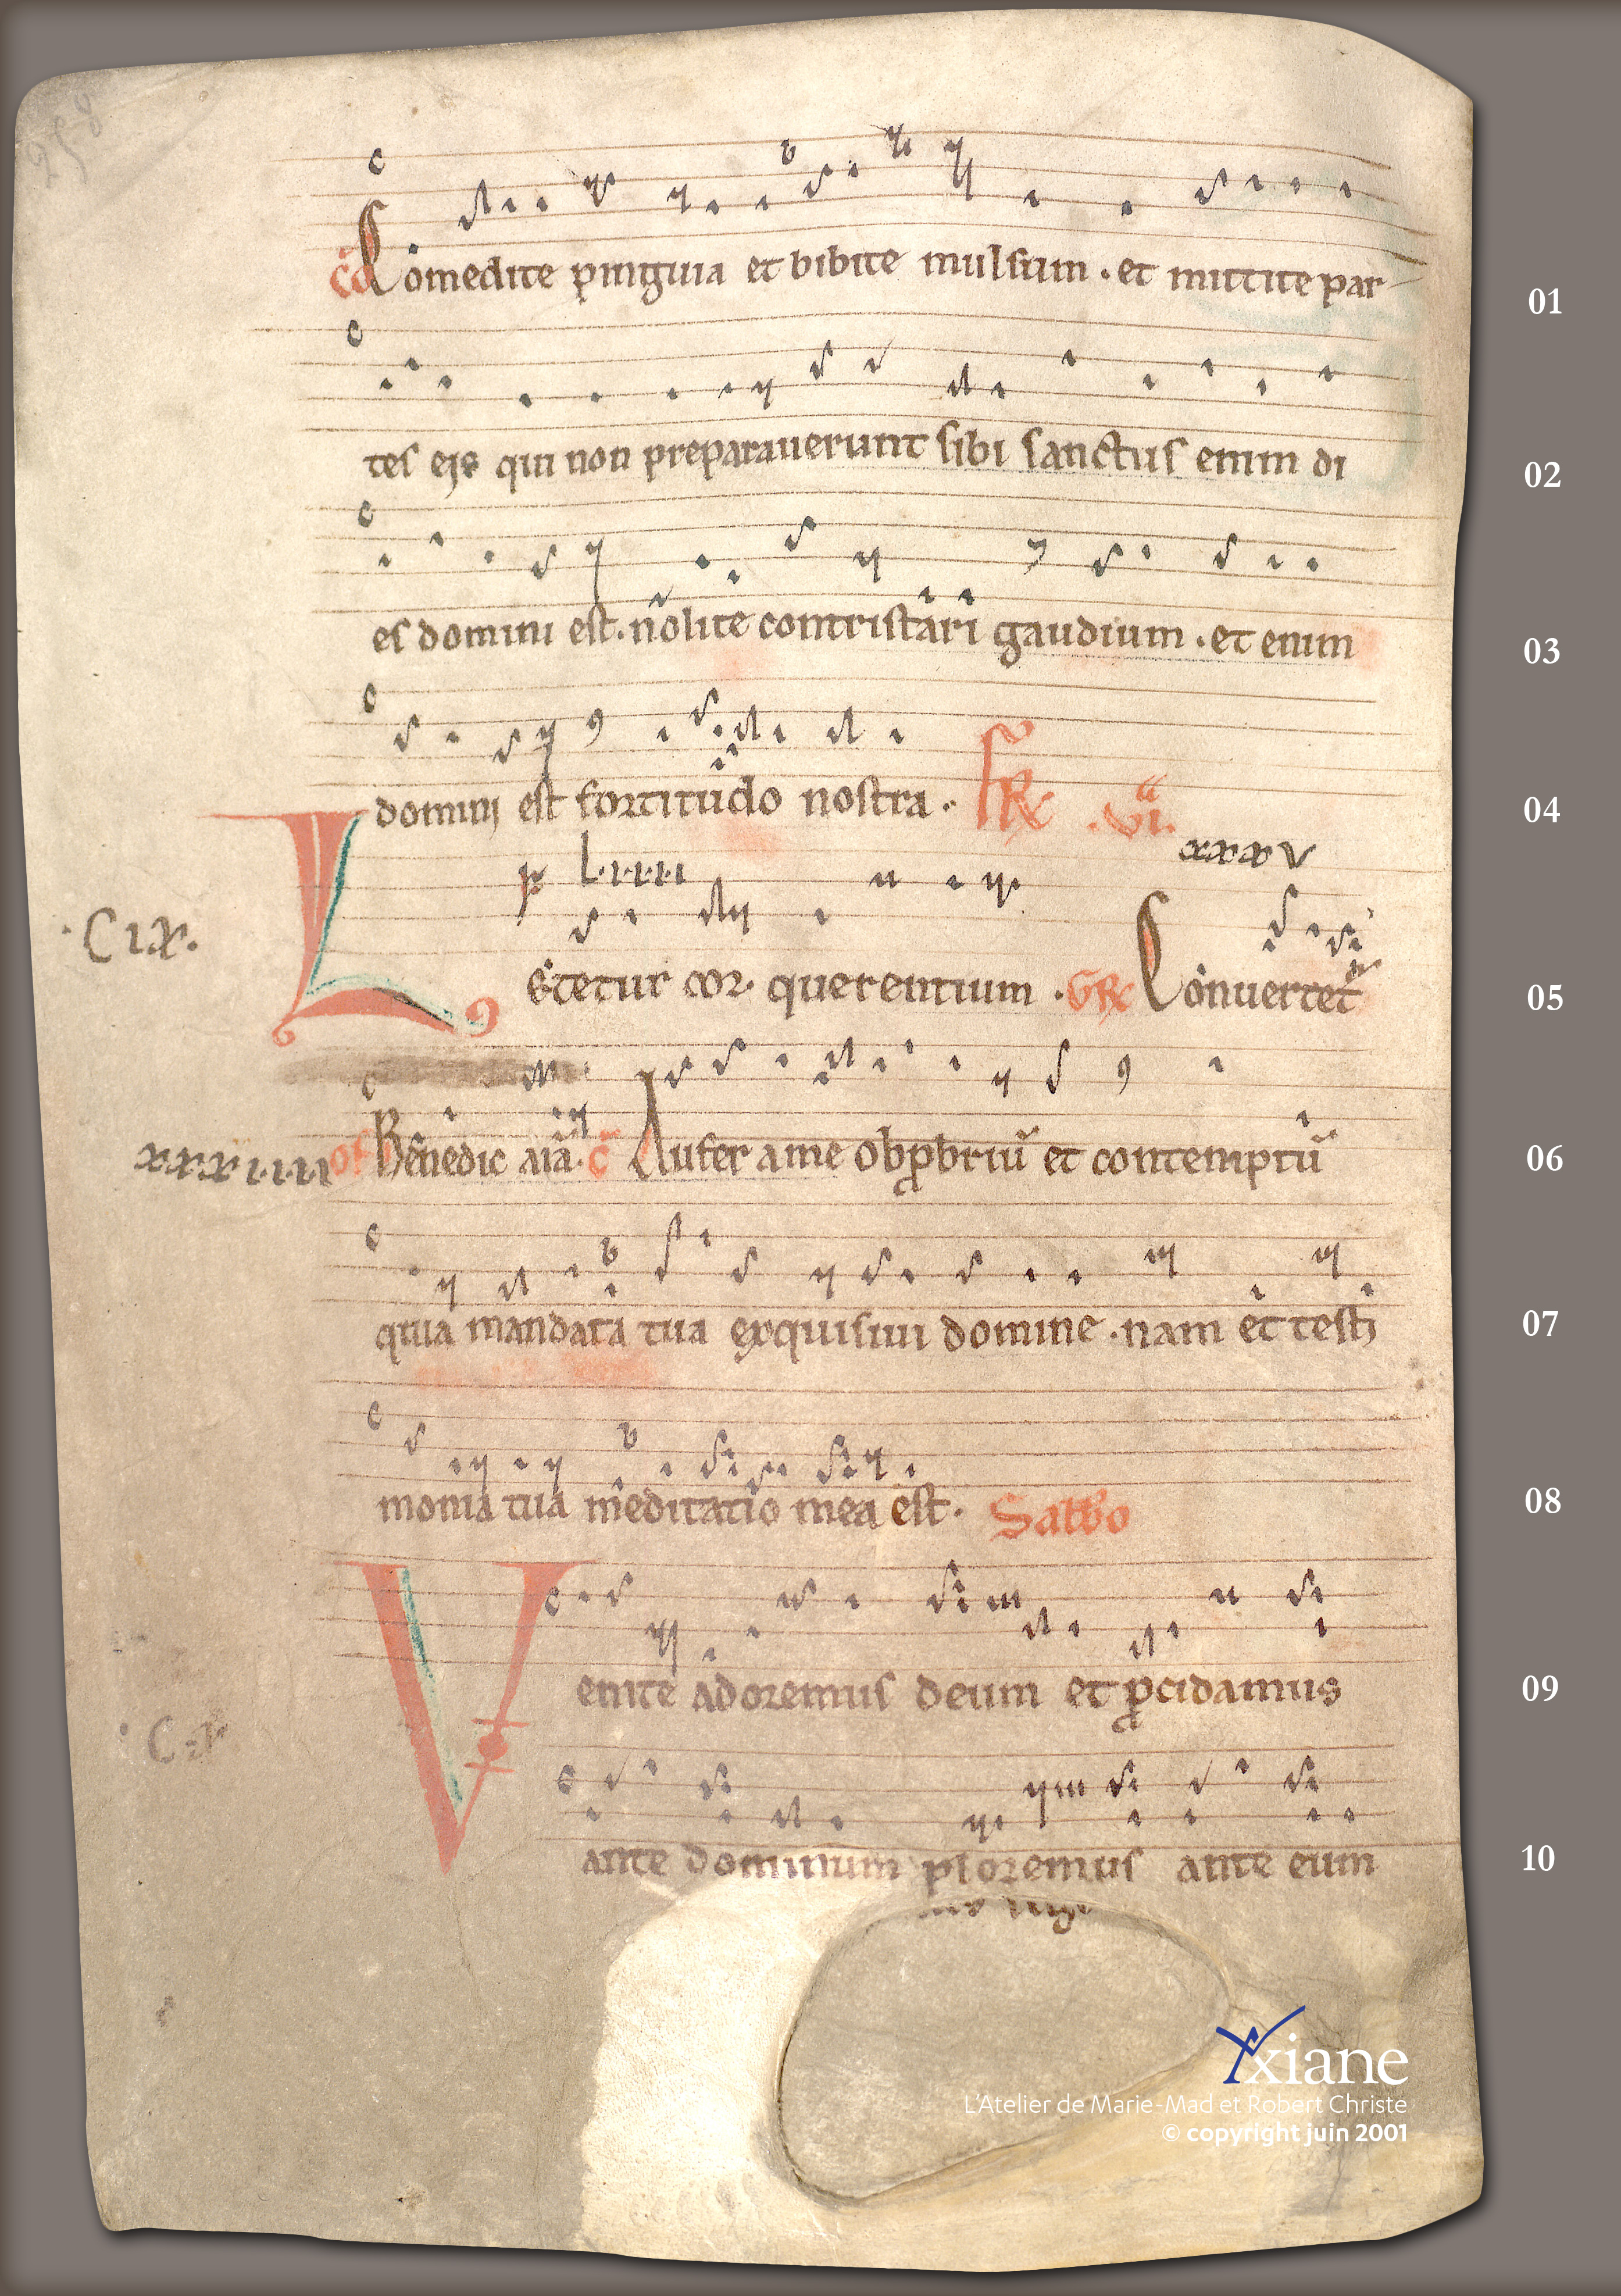 258
Comedite pinguia et bibite mulsum . et mittite par 01
tes eis qui non preparauerunt sibi sanctus enim di 02
es domini est . nolite contristari gaudium . et enim 03
domini est fortitudo nostra . FR vi.a 04
xxxv
p L.i.i.i.i
.C ix.
L etetur cor querentium . GR Conuertet 05
xxxiiii of Benedic aīa . c̄ Aufer a me obpbriū et contemptū 06
quia mandata tua exquisiui domine . nam et testi 07
monia tua meditatio mea est . Sabbo 08
V enite adoremus deum et pcidamus 09
C x
ante dominum ploremus ante eum 10
Yxiane
L'Atelier de Marie-Mad et Robert Christe
© copyright juin 2001